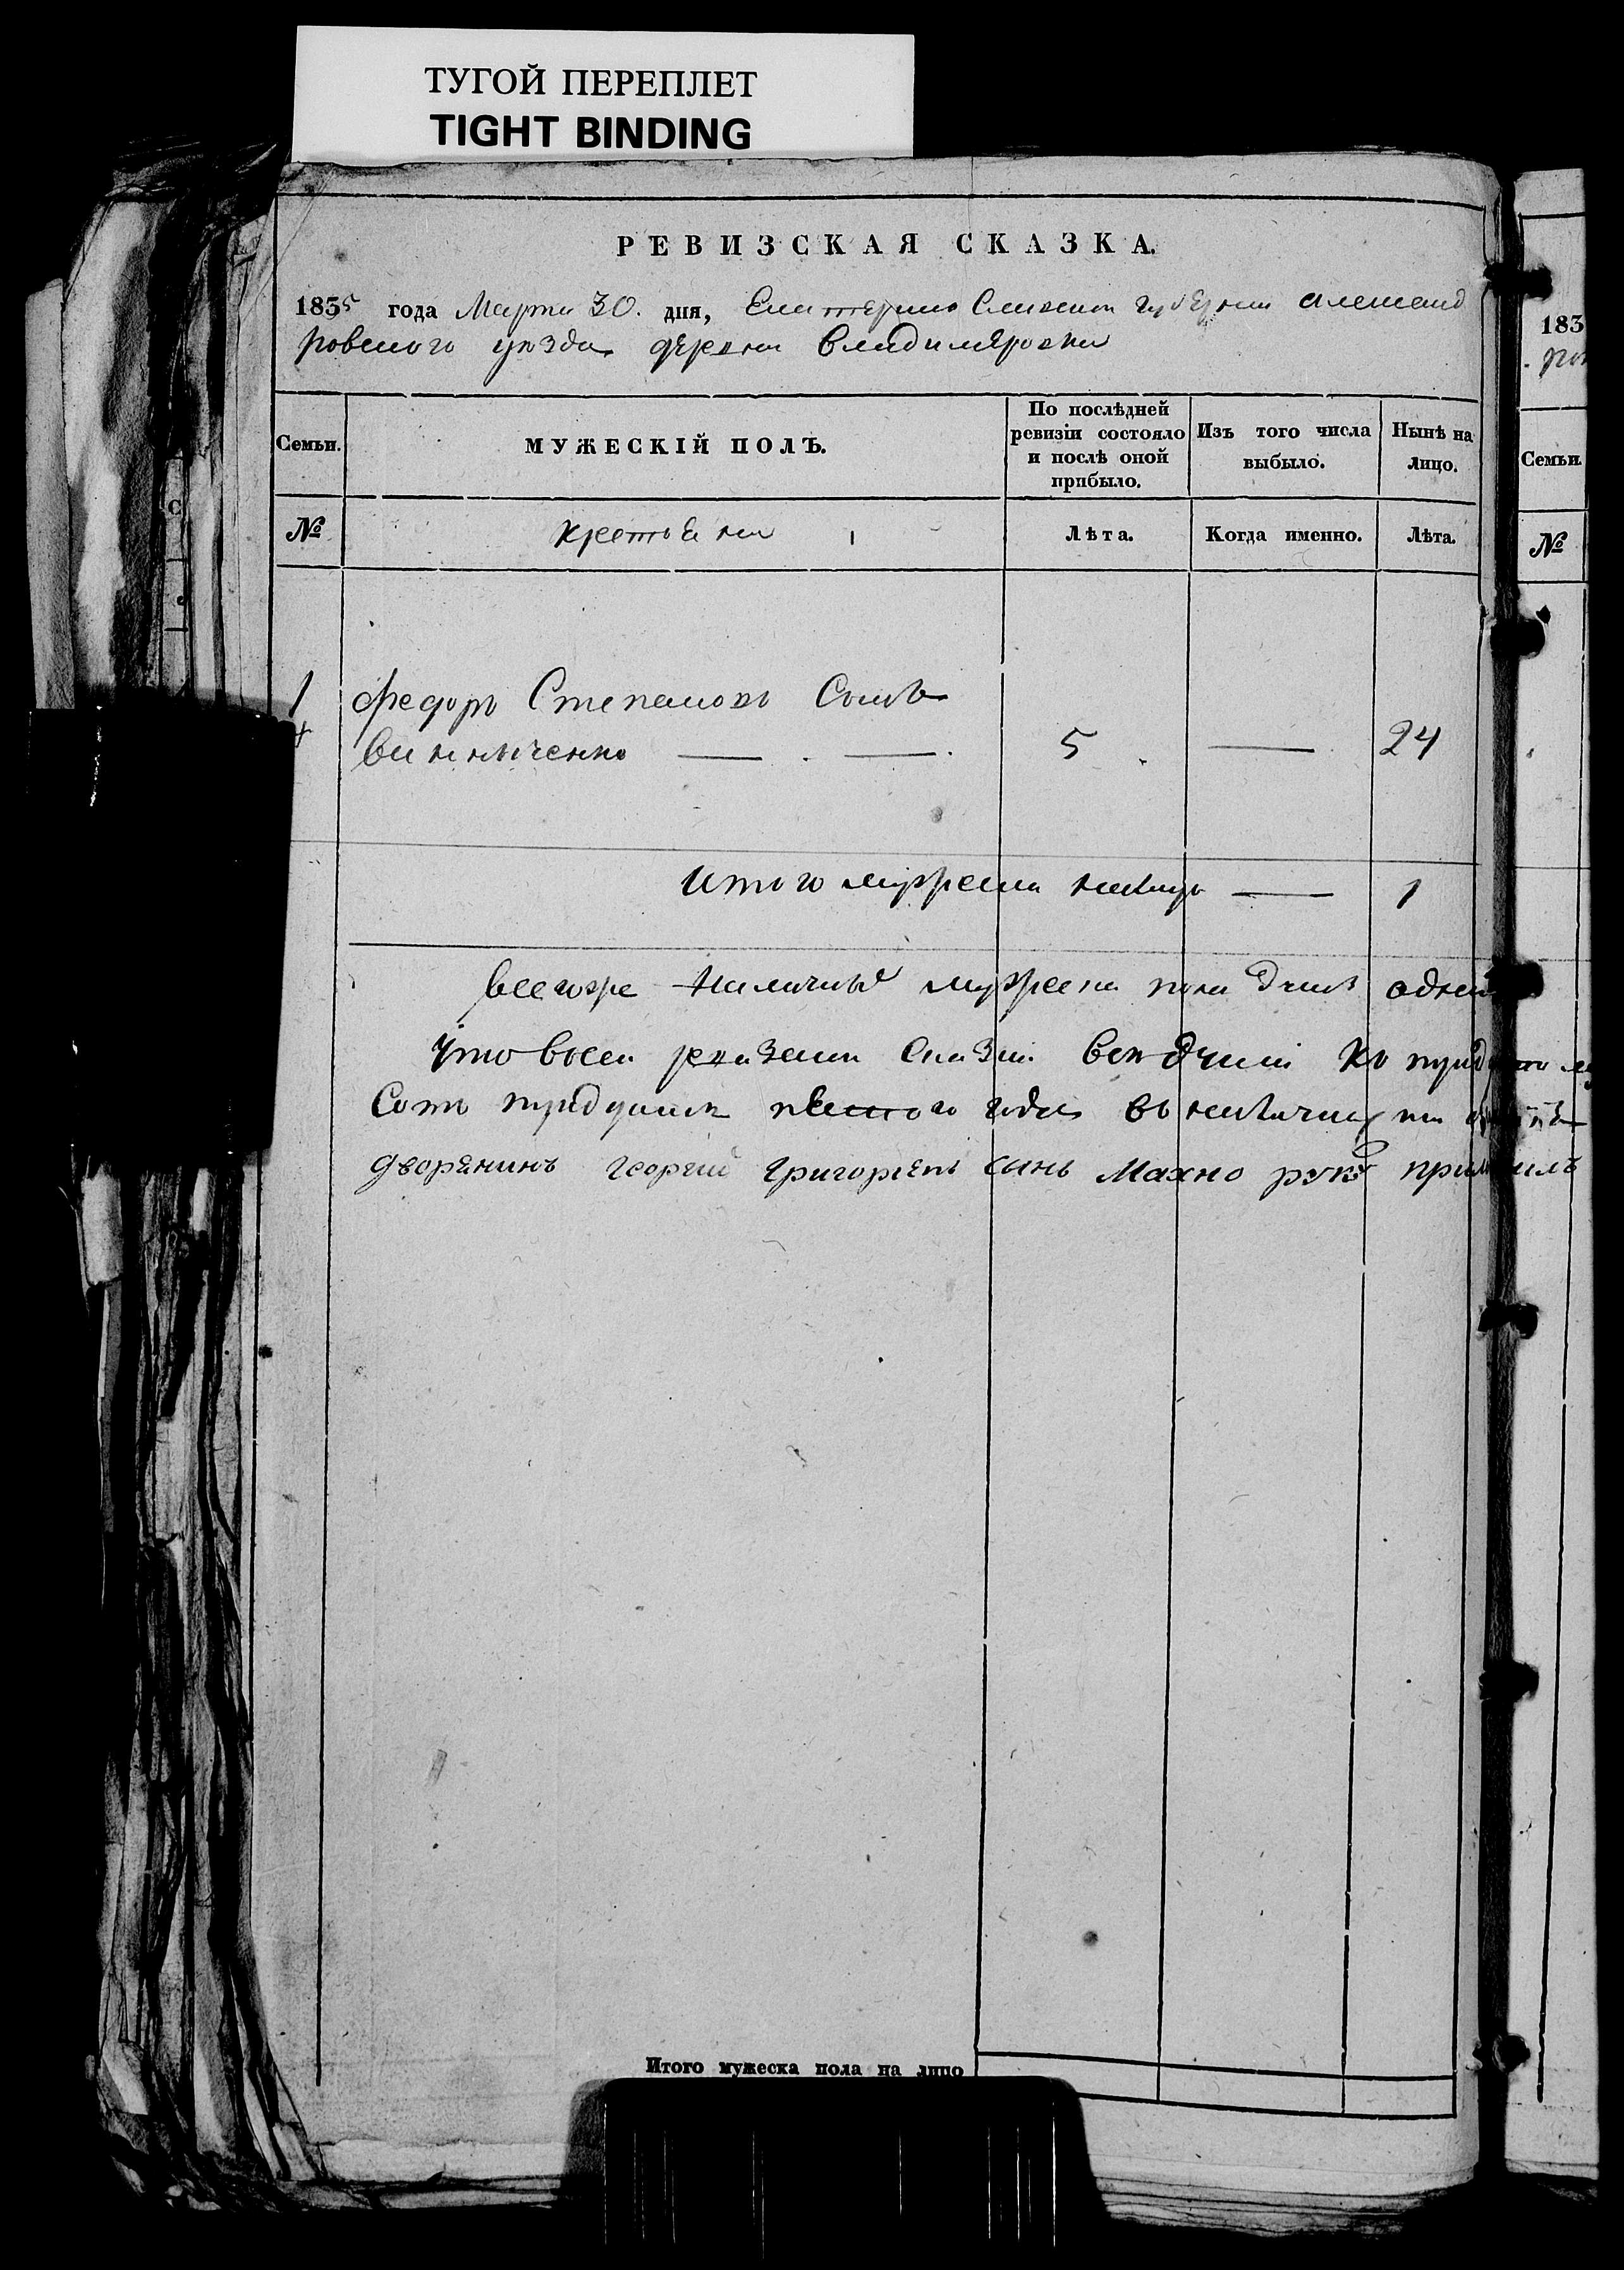 ТУГОЙ ПЕРЕПЛЕТ
TIGHT BINDING
РЕВИЗСКАЯ СКАЗКА.
1835 года Марта 30. дня, Екатерино Славской губернии александ
ровского уезда деревни владимеровки
Семьи. МУЖЕСКІЙ ПОЛЪ. По послѣдней ревизіи состояло и послѣ оной прибыло. Изъ того числа выбыло. Нынѣ на лицо.
№ крестьяни Лѣта. Когда именно. Лѣта.
1 Федоръ Степановъ Сынъ
4 винниченко 5 24
Итого мужеска налицо 1
всегоже наличных мужеска пола душъ одна
Что всей сказки
Сотъ тридцать года
дворянинъ георгий григориевъ сынъ Махно руку
Итого мужеска пола на лицо
183
Семьи.
№